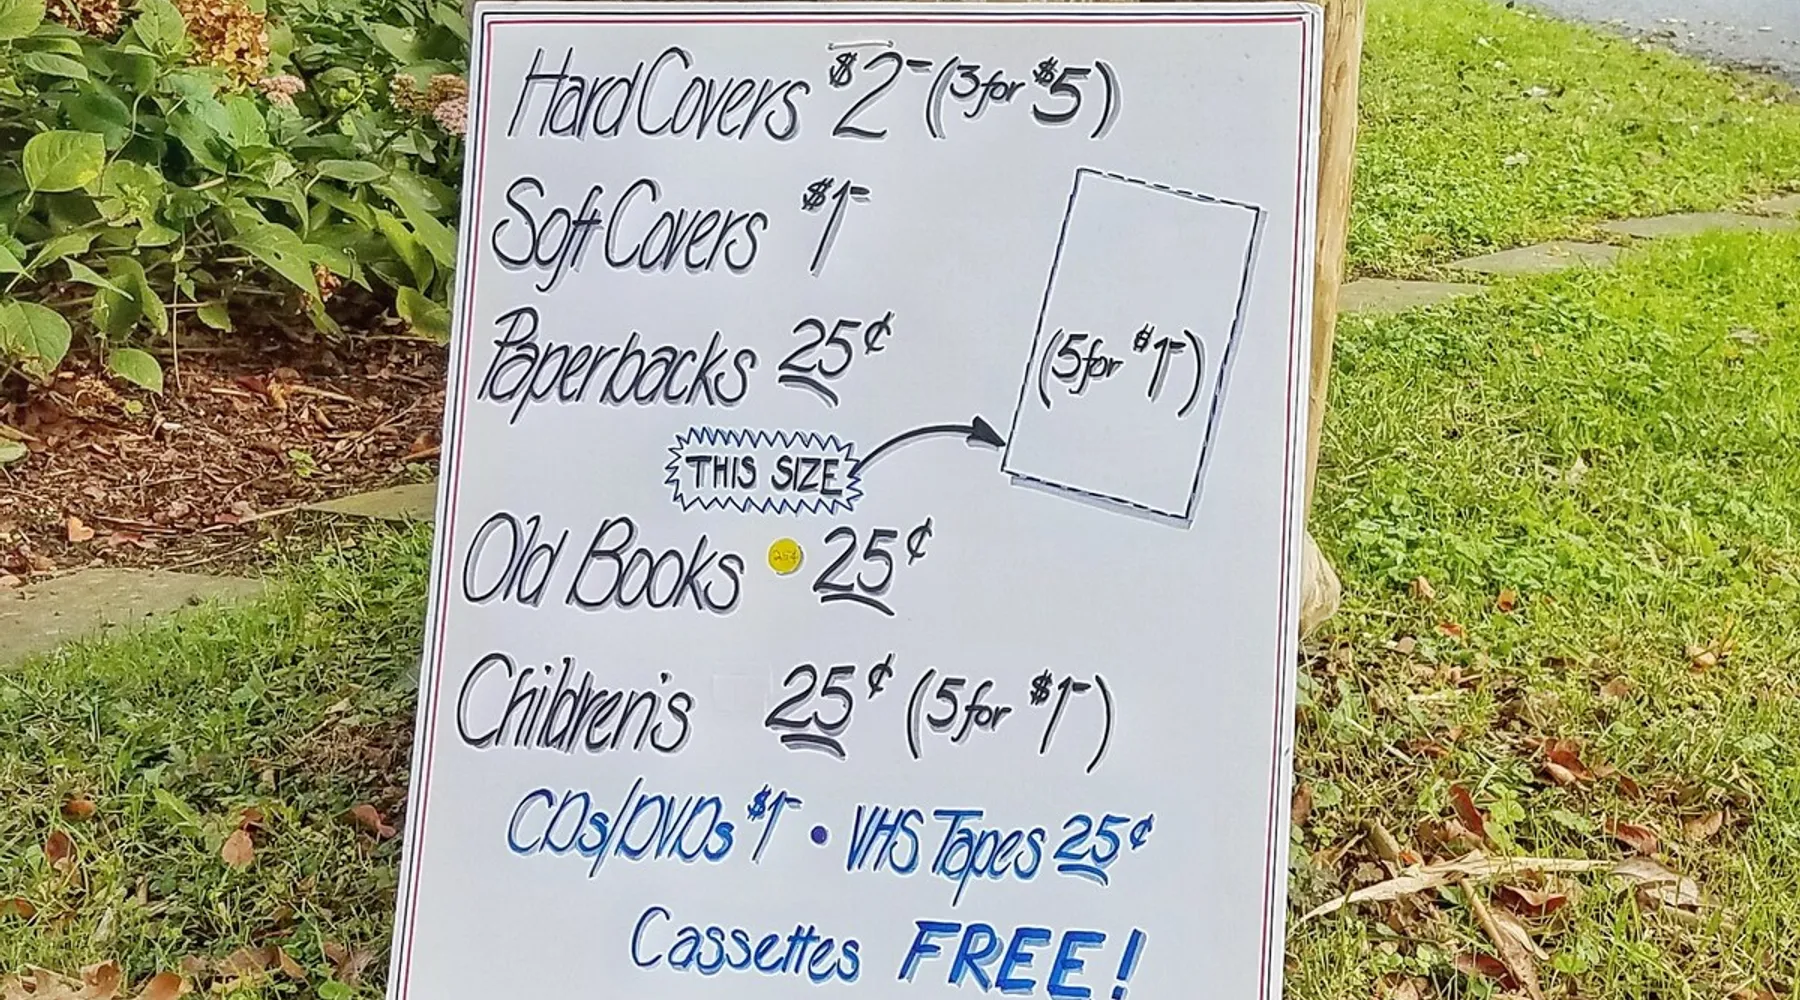 HardCovers $2- (3 for $5)
Soft Covers $1-
Paperbacks 25¢
(5 for $1-)
THIS SIZE
Old Books 25¢ 25¢
Children's 25¢ (5 for $1-)
CDs/DVDs $1- • VHS Tapes 25¢
Cassettes FREE!